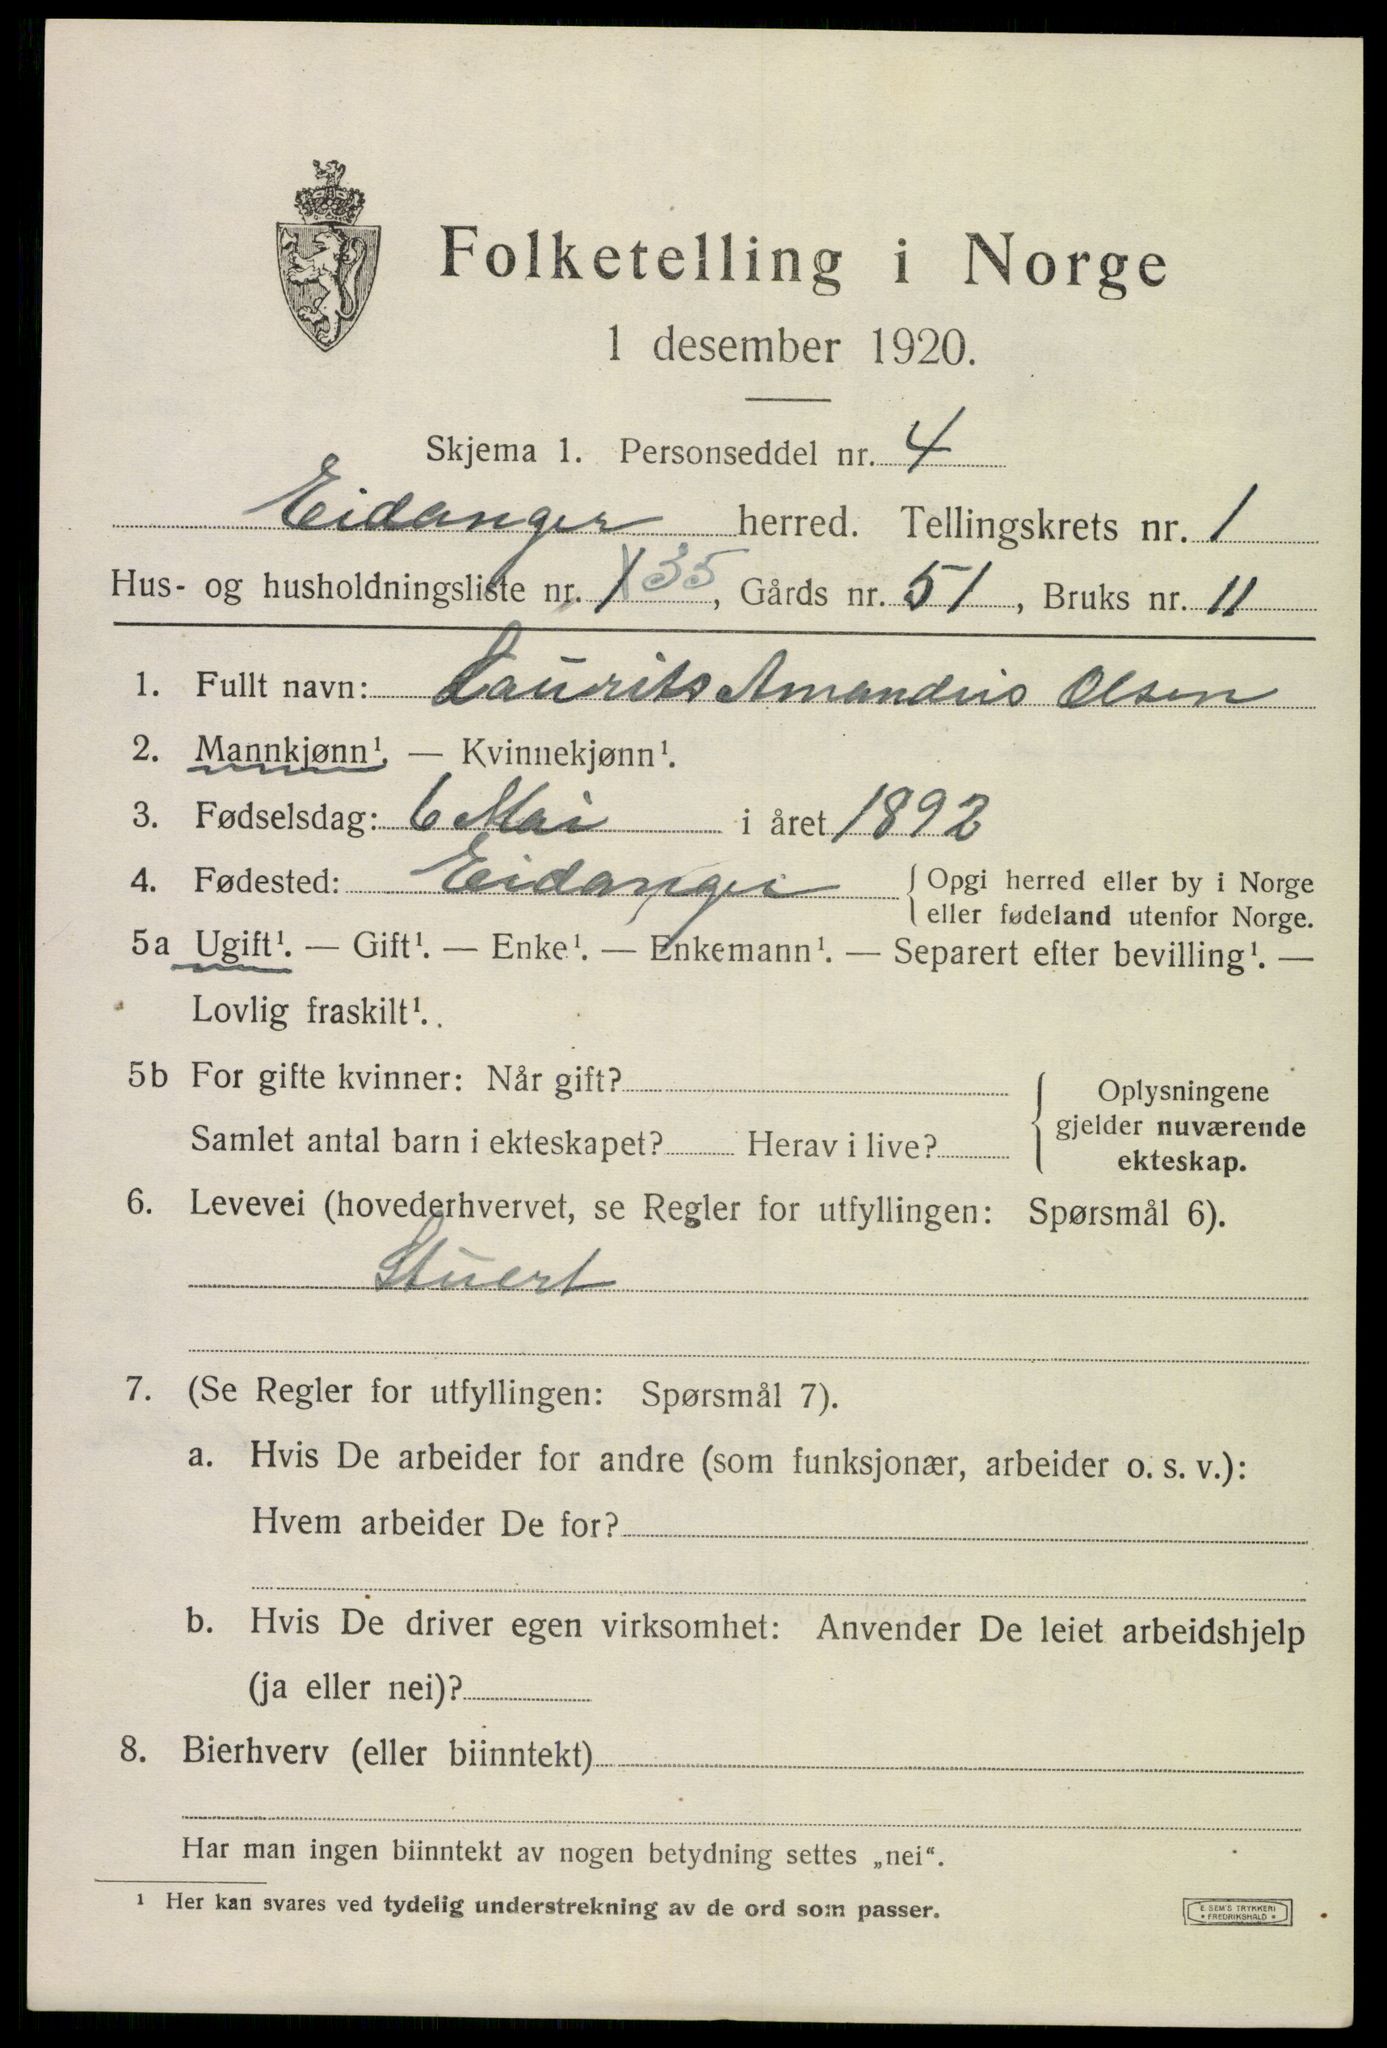 Folketelling i Norge
1 desember 1920.
Skjema 1. Personseddel nr. 4
Eidanger herred. Tellingskrets nr. 1
Hus- og husholdningsliste nr. 1 35, Gårds nr. 51, Bruks nr. 11
1. Fullt navn: Laurits Amandus Olsen
2. Mannkjønn¹. — Kvinnekjønn¹.
3. Fødselsdag: 6 Mai i året 1892
4. Fødested: Eidanger { Opgi herred eller by i Norge
eller fødeland utenfor Norge.
5a Ugift¹. — Gift¹. — Enke¹. — Enkemann¹. — Separert efter bevilling¹. —
Lovlig fraskilt¹.
5b For gifte kvinner: Når gift?
Samlet antal barn i ekteskapet? Herav i live?
{ Oplysningene
gjelder nuværende
ekteskap.
6. Levevei (hovederhvervet, se Regler for utfyllingen: Spørsmål 6).
Stuert
7. (Se Regler for utfyllingen: Spørsmål 7).
a. Hvis De arbeider for andre (som funksjonær, arbeider o. s. v.):
Hvem arbeider De for?
b. Hvis De driver egen virksomhet: Anvender De leiet arbeidshjelp
(ja eller nei)?
8. Bierhverv (eller biinntekt)
Har man ingen biinntekt av nogen betydning settes „nei“.
¹ Her kan svares ved tydelig understrekning av de ord som passer.
E. SEM'S TRYKKERI
• FREDRIKSHALD •